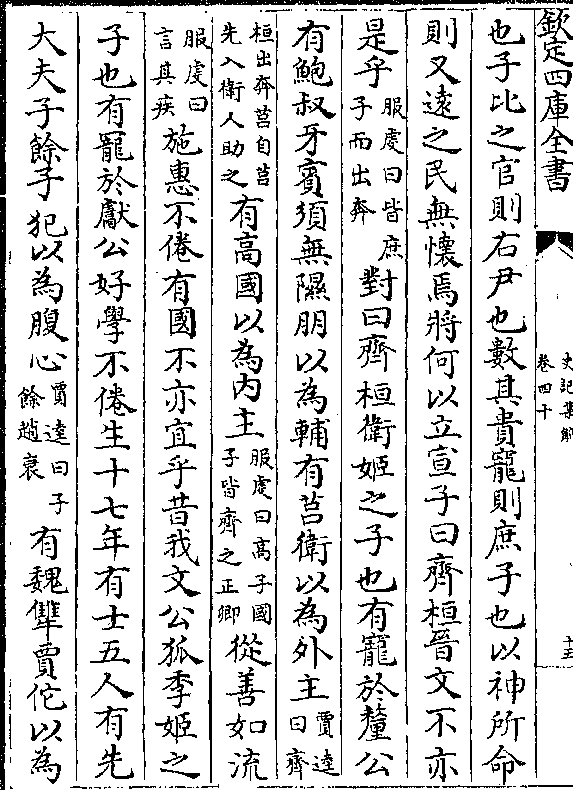 欽定四庫全書
史記集解
卷四十
十五
也子比之官則右尹也數其貴寵則庶子也以神所命
則又遠之民無懷焉將何以立宣子曰齊桓晉文不亦
是乎服虔曰皆庶子而出奔對曰齊桓衛姬之子也有寵於釐公
有鮑叔牙賓須無隰朋以為輔有莒衛以為外主賈逵曰齊
桓出奔莒自莒先入衛人助之有高國以為内主服虔曰高子國子皆齊之正卿從善如流
服虔曰言其疾施惠不倦有國不亦宜乎昔我文公狐季姬之
子也有寵於獻公好學不倦生十七年有士五人有先
大夫子餘子犯以為腹心賈逵曰子餘趙衰有魏犨賈佗以為